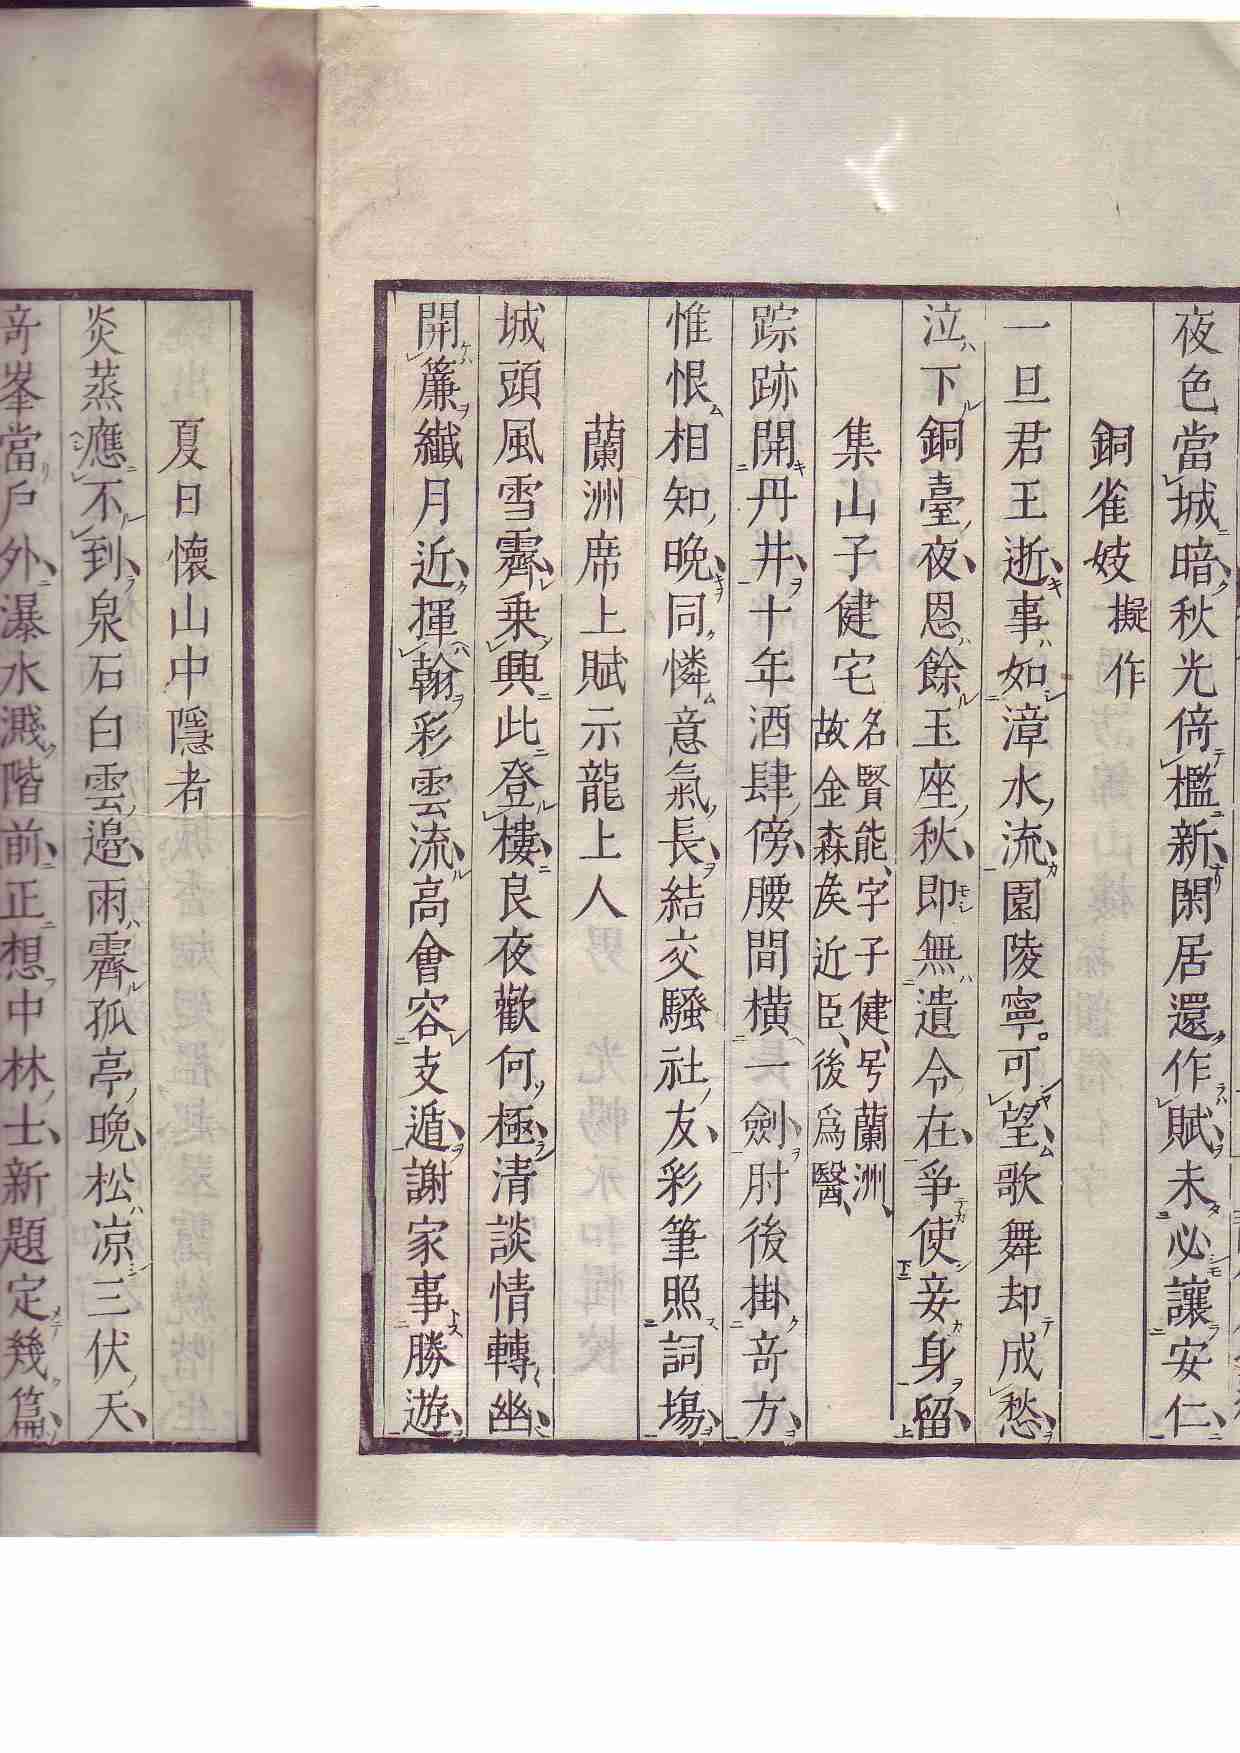 夜色當城暗秋光倚檻新閑居還作賦未必讓安仁
銅雀妓擬作
一旦君王逝事如漳水流園陵寧可望歌舞却成愁
泣下銅臺夜恩餘玉座秋即無遺令在爭使妾身留
集山子健宅
名賢能字子健号蘭洲
故金森矦近臣後爲醫
踪跡開丹井十年酒肆傍腰間横一劍肘後掛竒方
惟恨相知晩同憐意氣長結交騷社友彩筆照詞塲
蘭洲席上賦示龍上人
城頭風雪霽乗興此登樓良夜歡何極清談情轉幽
開簾纖月近揮翰彩雲流高會容支遁謝家事勝遊
夏日懷山中隱者
炎蒸應不到泉石白雲邉雨霽孤亭晩松凉三伏天
竒峯當戸外瀑水濺階前正想中林士新題定幾篇